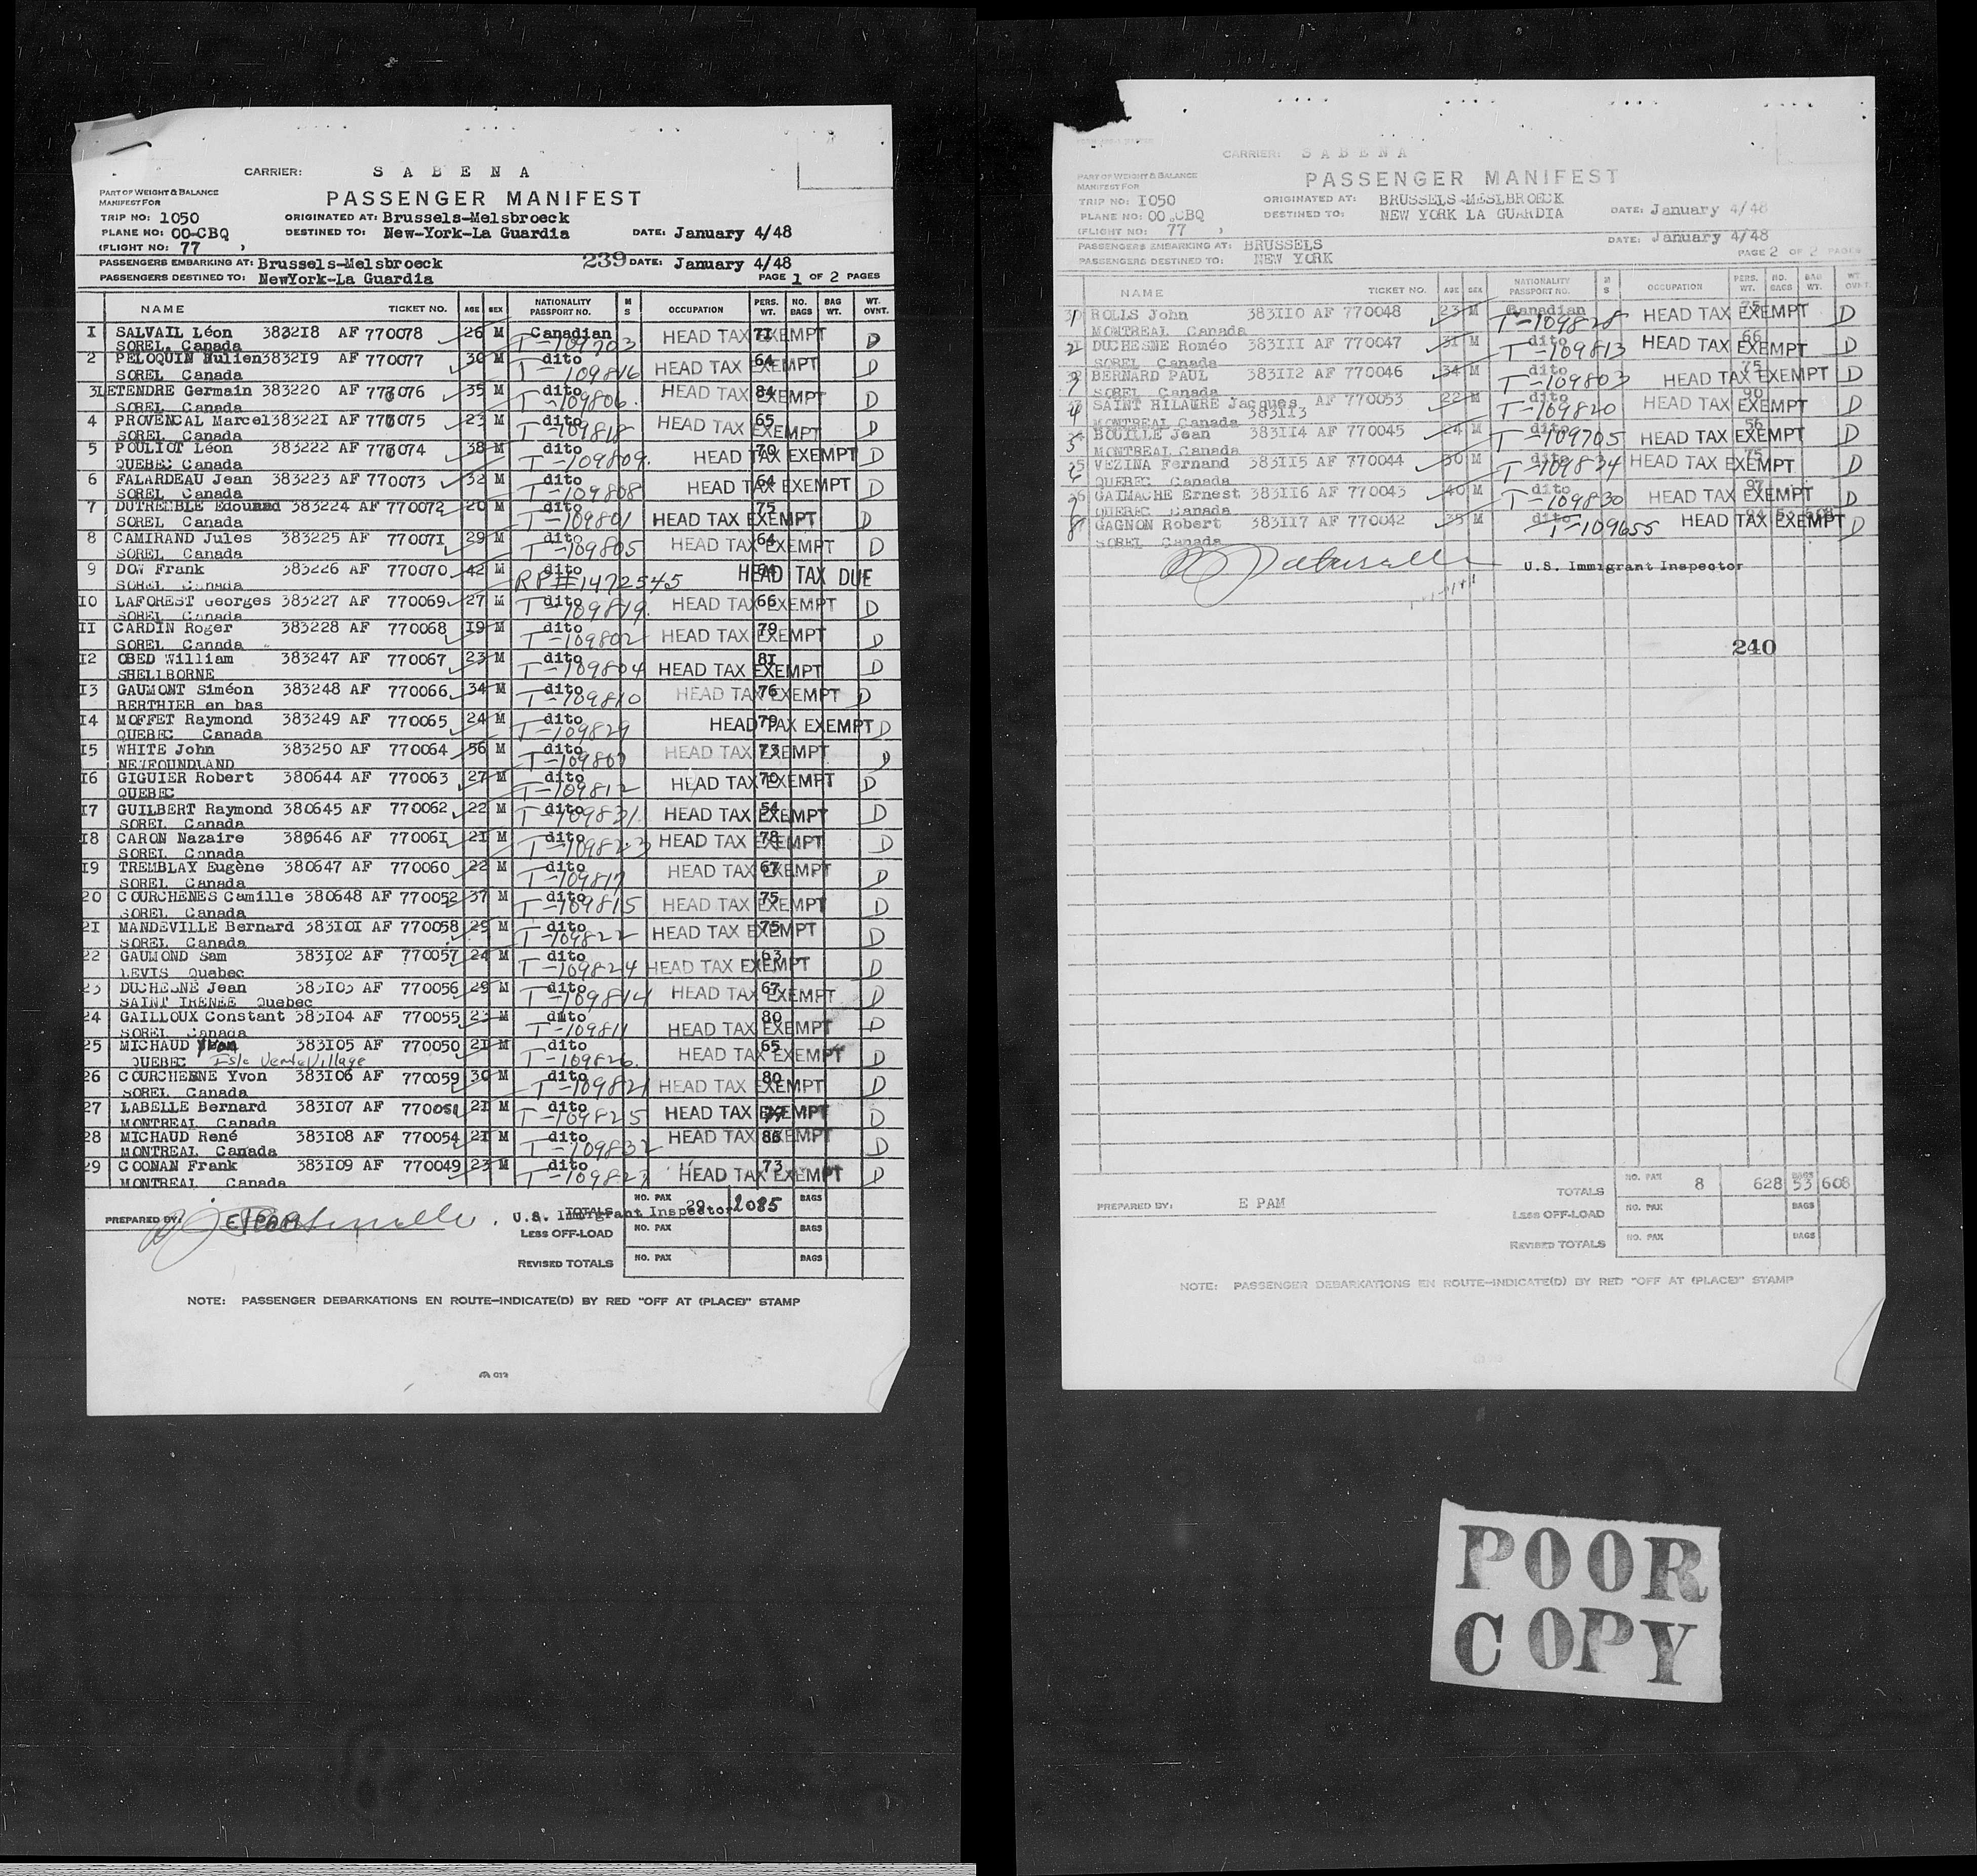 CARRIER: S A B E N A
PART OF WEIGHT & BALANCE
MANIFEST FOR
PASSENGER MANIFEST
TRIP NO: 1050 ORIGINATED AT: Brussels-Melsbroeck
PLANE NO: OO-CBQ DESTINED TO: New-York-La Guardia DATE: January 4/48
(FLIGHT NO: 77 )
PASSENGERS EMBARKING AT: Brussels-Melsbroeck 239 DATE: January 4/48
PASSENGERS DESTINED TO: NewYork-La Guardia PAGE 1 OF 2 PAGES
NAME TICKET NO. AGE SEX NATIONALITY PASSPORT NO. M S OCCUPATION PERS. WT. NO. BAGS BAG WT. WT. OVNT.
I SALVAIL Léon 3832I8 AF 770078 26 M Canadian HEAD TAX EXEMPT 7I D
SOREL. Canada T-109703
2 PELOQUIN Hulien3832I9 AF 770077 30 M dito HEAD TAX EXEMPT 64 D
SOREL Canada T-109816
3 LETENDRE Germain 383220 AF 770076 35 M dito HEAD TAX EXEMPT 84 D
SOREL Canada T-109806.
4 PROVENCAL Marcel38322I AF 770075 23 M dito HEAD TAX EXEMPT 65 D
SOREL Canada T-109818
5 POULIOT Léon 383222 AF 770074 38 M dito HEAD TAX EXEMPT 70 D
QUEBEC Canada T-109809.
6 FALARDEAU Jean 383223 AF 770073 32 M dito HEAD TAX EXEMPT 64 D
SOREL Canada T-109808
7 DUTREMBLE Edouard 383224 AF 770072 20 M dito HEAD TAX EXEMPT 75 D
SOREL Canada T-109801
8 CAMIRAND Jules 383225 AF 77007I 29 M dito HEAD TAX EXEMPT 64 D
SOREL Canada T-109805
9 DOW Frank 383226 AF 770070 42 M dito HEAD TAX DUE
SOREL Canada RP#1472545
IO LAFOREST Georges 383227 AF 770069 27 M dito HEAD TAX EXEMPT 66 D
SOREL Canada T-109819.
II CARDIN Roger 383228 AF 770068 I9 M dito HEAD TAX EXEMPT 79 D
SOREL Canada T-109802
I2 OBED William 383247 AF 770067 23 M dito HEAD TAX EXEMPT 8I D
SHELLBORNE T-109804
I3 GAUMONT Siméon 383248 AF 770066 34 M dito HEAD TAX EXEMPT 76 D
BERTHIER en bas T-109810
I4 MOFFET Raymond 383249 AF 770065 24 M dito HEAD TAX EXEMPT 79 D
QUEBEC Canada T-109829
I5 WHITE John 383250 AF 770064 56 M dito HEAD TAX EXEMPT 73 D
NEWFOUNDLAND T-109807
I6 GIGUIER Robert 380644 AF 770063 27 M dito HEAD TAX EXEMPT 70 D
QUEBEC T-109812
I7 GUILBERT Raymond 380645 AF 770062 22 M dito HEAD TAX EXEMPT 54 D
SOREL Canada T-109831
I8 CARON Nazaire 380646 AF 77006I 2I M dito HEAD TAX EXEMPT 78 D
SOREL Canada T-109823
I9 TREMBLAY Eugène 380647 AF 770060 22 M dito HEAD TAX EXEMPT 67 D
SOREL Canada T-109817
20 COURCHENES Camille 380648 AF 770052 37 M dito HEAD TAX EXEMPT 75 D
SOREL Canada T-109815
2I MANDEVILLE Bernard 383IOI AF 770058 29 M dito HEAD TAX EXEMPT 75 D
SOREL Canada T-109822
22 GAUMOND Sam 383IO2 AF 770057 24 M dito HEAD TAX EXEMPT 63 D
LEVIS Quebec T-109824
23 DUCHESNE Jean 383IO3 AF 770056 29 M dito HEAD TAX EXEMPT 67 D
SAINT IRENEE Quebec T-109814
24 GAILLOUX Constant 383IO4 AF 770055 23 M dito HEAD TAX EXEMPT 80 D
SOREL Canada T-109811
25 MICHAUD Yvon 383IO5 AF 770050 2I M dito HEAD TAX EXEMPT 65 D
QUEBEC Isle Verte Village T-109826.
26 COURCHESNE Yvon 383IO6 AF 770059 30 M dito HEAD TAX EXEMPT 80 D
SOREL Canada T-109821
27 LABELLE Bernard 383IO7 AF 770051 2I M dito HEAD TAX EXEMPT D
MONTREAL Canada T-109825
28 MICHAUD René 383IO8 AF 770054 2I M dito HEAD TAX EXEMPT 86 D
MONTREAL Canada T-109832
29 COONAN Frank 383IO9 AF 770049 23 M dito HEAD TAX EXEMPT 73 D
MONTREAL Canada T-109827
PREPARED BY: E PAM U.S. Immigrant Inspector TOTALS NO. PAX 29 2085 BAGS
LESS OFF-LOAD NO. PAX BAGS
REVISED TOTALS NO. PAX BAGS
NOTE: PASSENGER DEBARKATIONS EN ROUTE-INDICATE(D) BY RED "OFF AT (PLACE)" STAMP
CARRIER: S A B E N A
PART OF WEIGHT & BALANCE
MANIFEST FOR
PASSENGER MANIFEST
TRIP NO: I050 ORIGINATED AT: BRUSSELS-MESLBROECK
PLANE NO: OO.CBQ DESTINED TO: NEW YORK LA GUARDIA DATE: January 4/48
(FLIGHT NO: 77 )
PASSENGERS EMBARKING AT: BRUSSELS DATE: January 4/48
PASSENGERS DESTINED TO: NEW YORK PAGE 2 OF 2 PAGES
NAME TICKET NO. AGE SEX NATIONALITY PASSPORT NO. M S OCCUPATION PERS. WT. NO. BAGS BAG WT. WT. OVNT.
1 ROLLS John 383IIO AF 770048 23 M Canadian HEAD TAX EXEMPT 75 D
MONTREAL Canada T-109828
2 DUCHESNE Roméo 383III AF 770047 31 M dito HEAD TAX EXEMPT 66 D
SOREL Canada T-109813
3 BERNARD PAUL 383II2 AF 770046 34 M dito HEAD TAX EXEMPT 75 D
SOREL Canada T-109803
4 SAINT HILAURE Jacques AF 770053 22 M dito HEAD TAX EXEMPT 90 D
383II3
MONTREAL Canada T-109820
5 BOUILLE Jean 383II4 AF 770045 24 M dito HEAD TAX EXEMPT 56 D
MONTREAL Canada T-109705
6 VEZINA Fernand 383II5 AF 770044 30 M dito HEAD TAX EXEMPT 75 D
QUEBEC Canada T-109834
7 GAIMACHE Ernest 383II6 AF 770043 40 M dito HEAD TAX EXEMPT 97 D
QUEBEC Canada T-109830
8 GAGNON Robert 383II7 AF 770042 35 M dito HEAD TAX EXEMPT D
SOREL Canada T-109655
U.S. Immigrant Inspector
240
PREPARED BY: E PAM TOTALS NO. PAX 8 628 BAGS 53 608
LESS OFF-LOAD NO. PAX BAGS
REVISED TOTALS NO. PAX BAGS
NOTE: PASSENGER DEBARKATIONS EN ROUTE-INDICATE(D) BY RED "OFF AT (PLACE)" STAMP
POOR
COPY